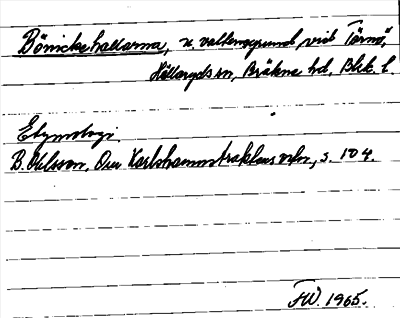 Bönickehallarna, n. vattengrund vid Tärnö,
Hällaryds sn, Bräkne hd, Blek. l.
Etymologi.
B. Ohlsson, Om Karlshamnstraktens ortn., s. 104.
FW. 1965.